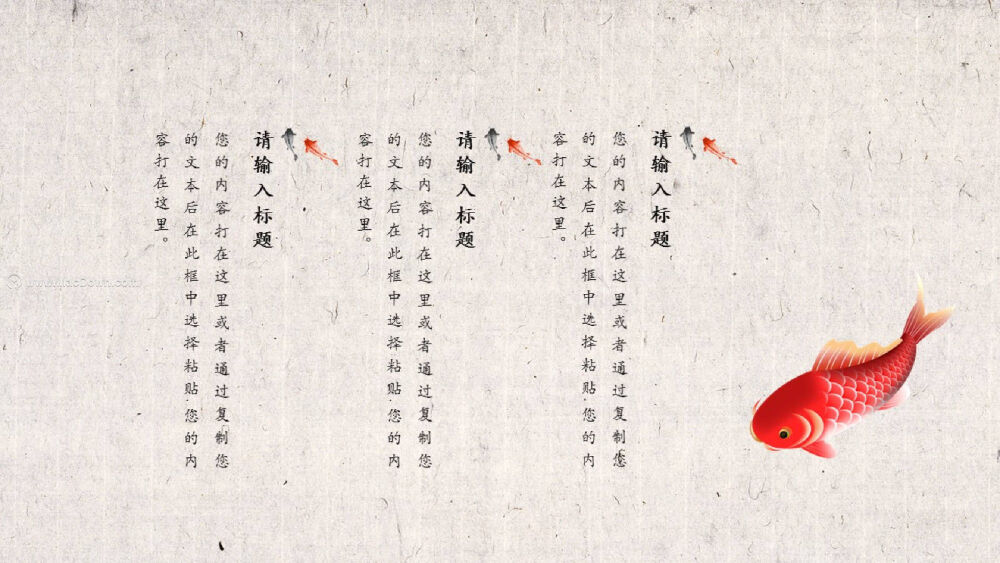 请输入标题
您的内容打在这里或者通过复制您
的文本后在此框中选择粘贴您的内
容打在这里。
请输入标题
您的内容打在这里或者通过复制您
的文本后在此框中选择粘贴您的内
容打在这里。
请输入标题
您的内容打在这里或者通过复制您
的文本后在此框中选择粘贴您的内
容打在这里。